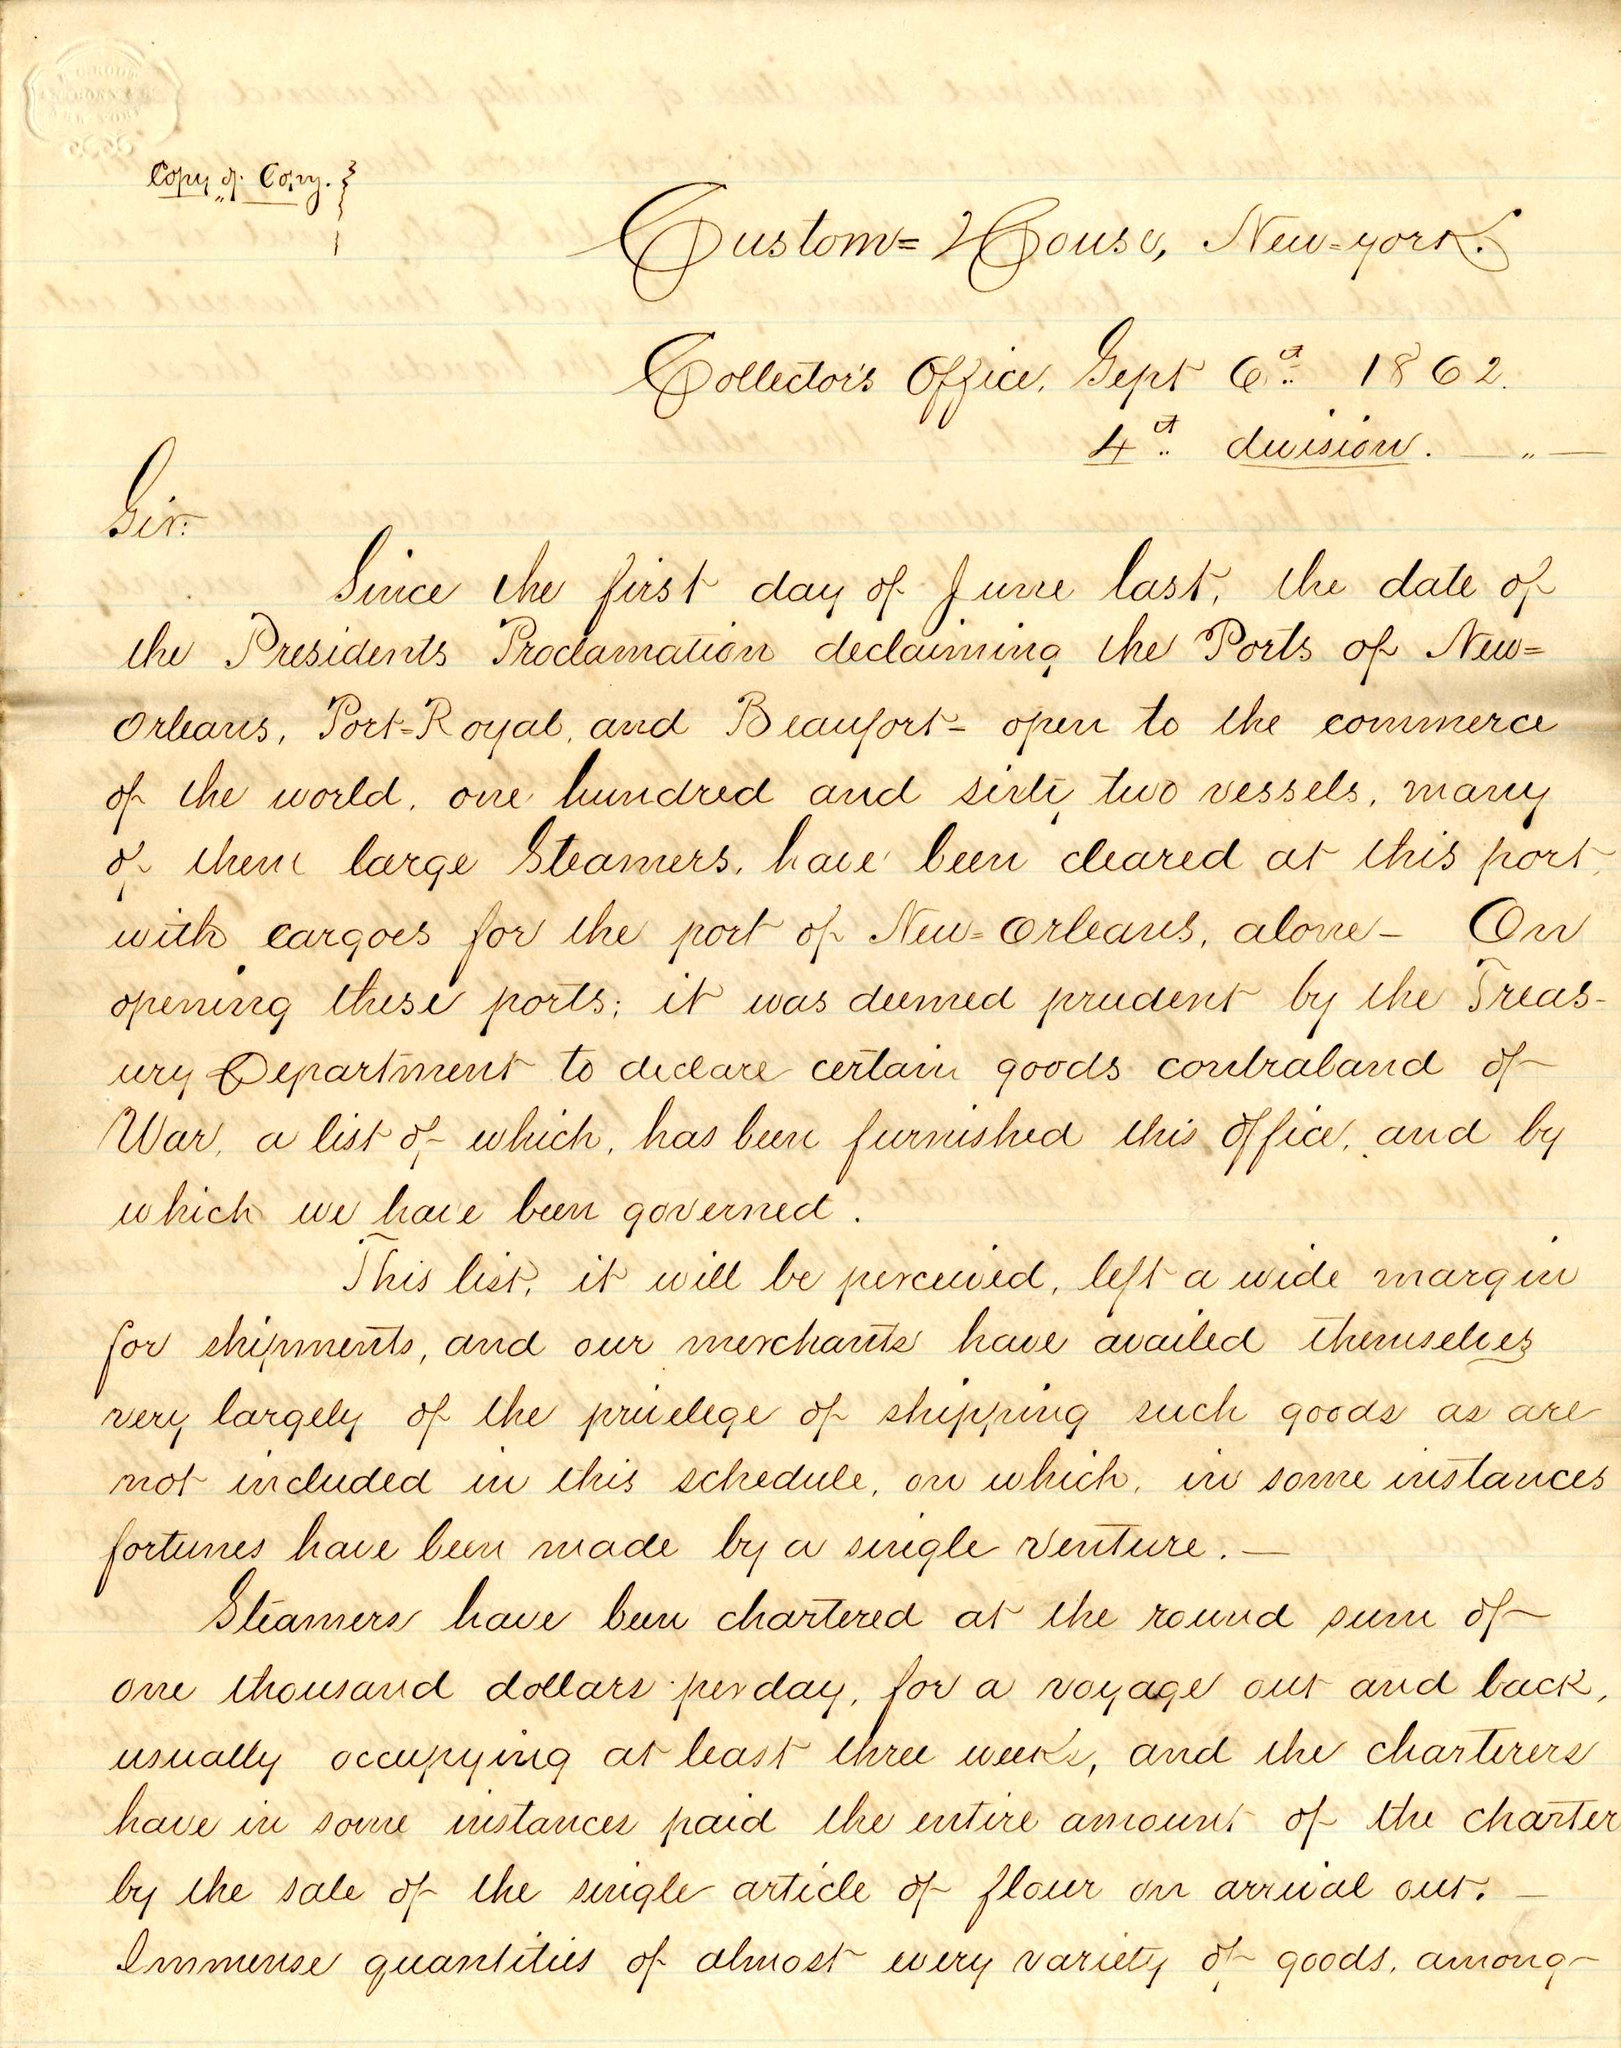 Copy of Copy.
Custom=House, New=york.
Collector's Office, Sept 6th 1862.
4th division. — " —
Sir:
Since the first day of June last, the date of
the Presidents Proclamation declaiming the Ports of New=
Orleans, Port=Royal, and Beaufort= open to the commerce
of the world, one hundred and sixty two vessels, many
of them large Steamers, have been cleared at this port,
with cargoes for the port of New=Orleans, alone— On
opening these ports; it was deemed prudent by the Treas-
ury Department to declare certain goods contraband of
War, a list of which, has been furnished this office, and by
which we have been governed.
This list, it will be perceived, left a wide margin
for shipments, and our merchants have availed themselves
very largely of the privelege of shipping such goods as are
not included in this schedule, on which, in some instances
fortunes have been made by a single venture.—
Steamers have been chartered at the round sum of
one thousand dollars per day, for a voyage out and back,
usually occupying at least three weeks, and the charterers
have in some instances paid the entire amount of the charter
by the sale of the single article of flour on arrival out. —
Immense quantities of almost every variety of goods, among